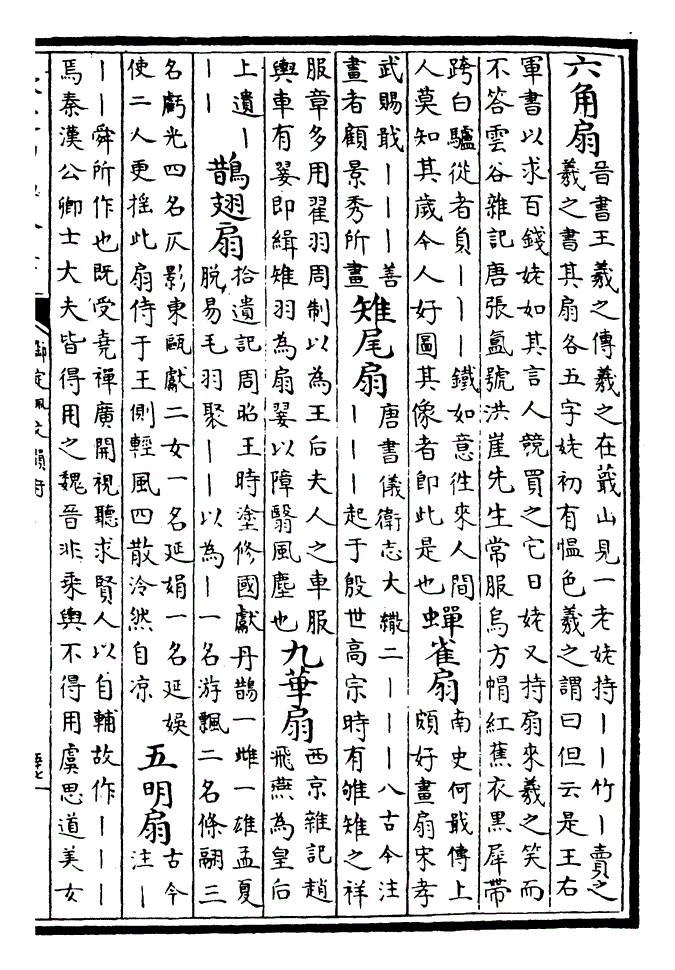 六角扇
晉書王羲之傳羲之在蕺山見一老姥持丨丨竹丨賣之
羲之書其扇各五字姥初有愠色羲之謂曰但云是王右
軍書以求百錢姥如其言人競買之它日姥又持扇來羲之笑而
不答雲谷雜記唐張氲號洪崖先生常服烏方帽紅蕉衣黑犀帶
跨白驢從者負丨丨丨鐵如意往來人間
人莫知其歲今人好圖其像者即此是也
蟬雀扇
南史何戢傳上
頗好畫扇宋孝
武賜戢丨丨丨善
畫者顧景秀所畫
雉尾扇
唐書儀衛志大繖二丨丨丨八古今注
丨丨丨起于殷世高宗時有雊雉之祥
服章多用翟羽周制以為王后夫人之車服
輿車有翣即緝雉羽為扇翣以障翳風塵也
九華扇
西京雜記趙
飛燕為皇后
上遺丨
丨丨
鵲翅扇
拾遺記周昭王時塗修國獻丹鵲一雌一雄孟夏
脱易毛羽聚丨丨以為丨一名游飄二名條翮三
名虧光四名仄影東甌獻二女一名延娟一名延娱
使二人更摇此扇侍于王側輕風四散泠然自凉
五明扇
古今
注丨
丨丨舜所作也既受堯禪廣開視聽求賢人以自輔故作丨丨丨
焉秦漢公卿士大夫皆得用之魏晉非乘輿不得用虞思道美女
御定佩文韻府